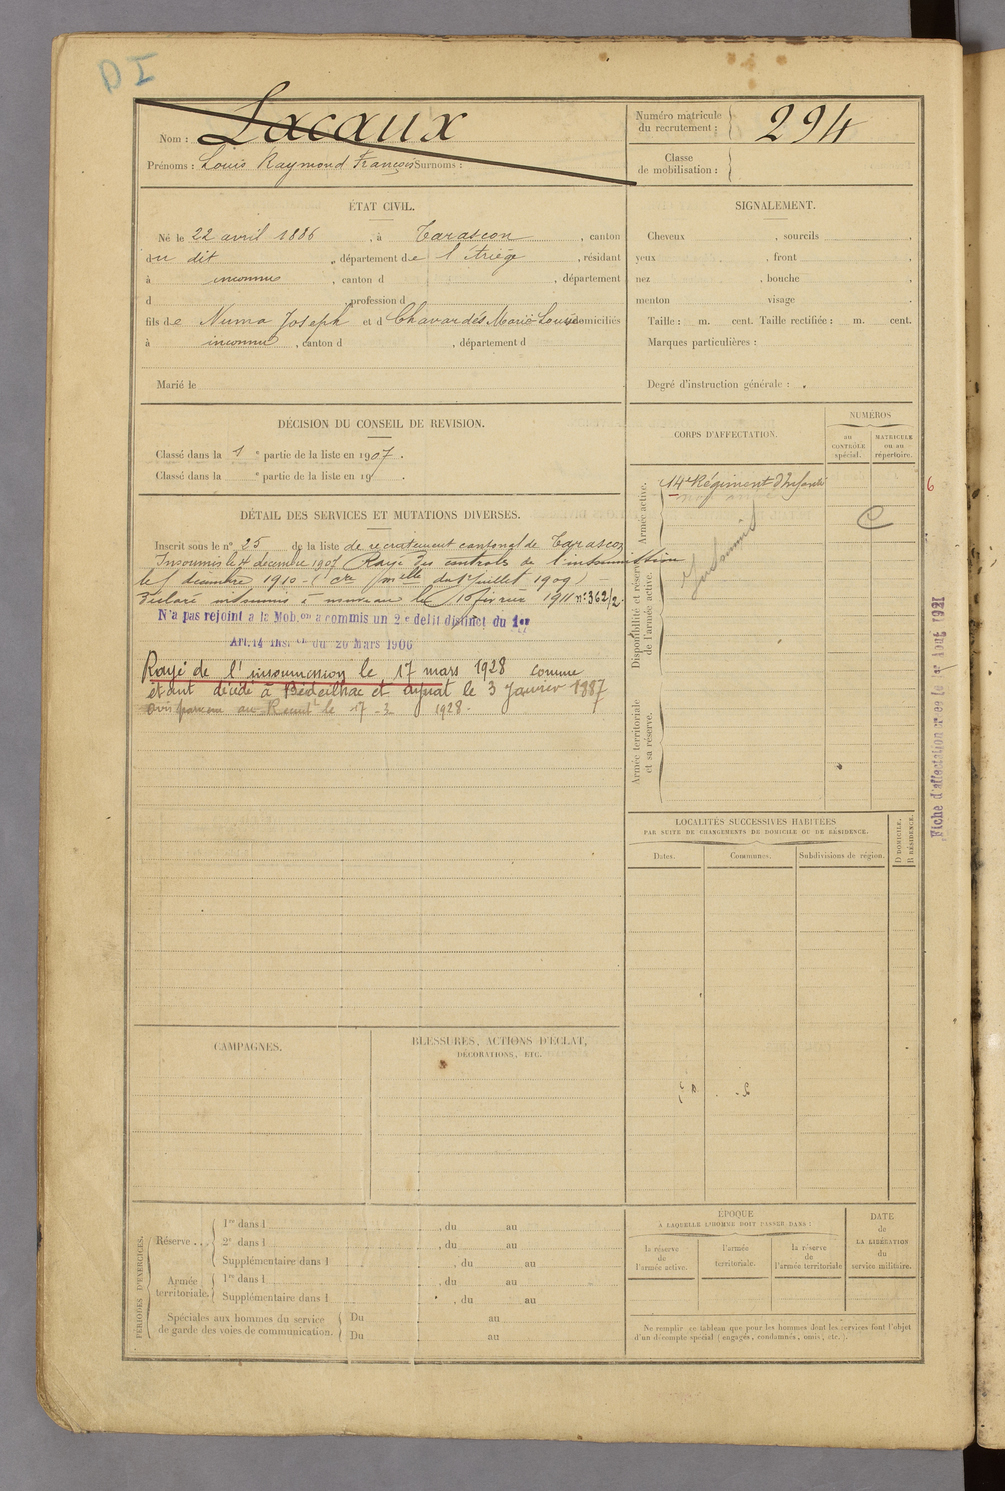 DI
Nom : Lacaux
Prénoms : Louis Raymond François Surnoms :
Numéro matricule
du recrutement : 294
Classe
de mobilisation :
ÉTAT CIVIL.
Né le 22 avril 1886 , à Tarascon , canton
du dit , département de l'Ariège , résidant
à inconnu , canton d , département
d profession d
fils de Numa Joseph et d Chavardés Marie-Louise domiciliés
à inconnu , canton d , département d
Marié le
SIGNALEMENT.
Cheveux , sourcils
yeux , front ,
nez , bouche
menton visage .
Taille : m. cent. Taille rectifiée : m. cent.
Marques particulières :
Degré d'instruction générale : .
DÉCISION DU CONSEIL DE REVISION.
Classé dans la 1 e partie de la liste en 1907 .
Classé dans la e partie de la liste en 19 .
DÉTAIL DES SERVICES ET MUTATIONS DIVERSES.
Inscrit sous le n° 25 de la liste de recrutement cantonal de Tarascon
Insoumis le 4 décembre 1907 Rayé des controls de l'insoumission
le décembre 1910 - (Cre Mlle du 1er Juillet 1909) -
Déclaré insoumis à nouveau le 16 février 1911 n° 362/2.
N'a pas rejoint a la Mob.on a commis un 2e délit distinct du 1er
Art. 14 Ins.on du 20 Mars 1906
Rayé de l'insoumission le 17 mars 1928 comme
étant décédé à Bédeilhac et Aynat le 3 Janvier 1887
avis au Recrut le 17 - 3 1928 -
CORPS D'AFFECTATION.
NUMÉROS
au
CONTRÔLE
spécial.
MATRICULE
ou au
répertoire.
Armée active.
14e Régiment d'Infanterie
Insoumis
C
6
Disponibilité et réserve
de l'armée active.
Armée territoriale
et sa réserve.
Fiche d'affectation créée le 1er Août 1921
LOCALITÉS SUCCESSIVES HABITÉES
PAR SUITE DE CHANGEMENTS DE DOMICILE OU DE RÉSIDENCE.
Dates.
Communes.
Subdivisions de région.
D DOMICILE.
R RÉSIDENCE.
CAMPAGNES.
BLESSURES, ACTIONS D'ÉCLAT,
DÉCORATIONS, ETC.
PÉRIODES D'EXERCICES.
Réserve . . .
1re dans l , du au
2e dans l , du au
Supplémentaire dans l , du au
Armée
territoriale.
1re dans l , du au
Supplémentaire dans l , du au
Spéciales aux hommes du service
de garde des voies de communication.
Du au
Du au
ÉPOQUE
À LAQUELLE L'HOMME DOIT PASSER DANS :
la réserve
de
l'armée active.
l'armée
territoriale.
la réserve
de
l'armée territoriale
DATE
de
LA LIBÉRATION
du
service militaire.
Ne remplir ce tableau que pour les hommes dont les services font l'objet
d'un décompte spécial (engagés, condamnés, omis, etc.).